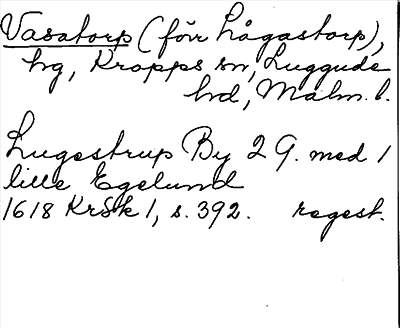 Vasatorp (förr Lågastorp),
hg, Kropps sn, Luggude
hd, Malm. l.
Lugestrup By 2 G. med 1
lille Egelund
1618 KrSk 1, s. 392. regest.